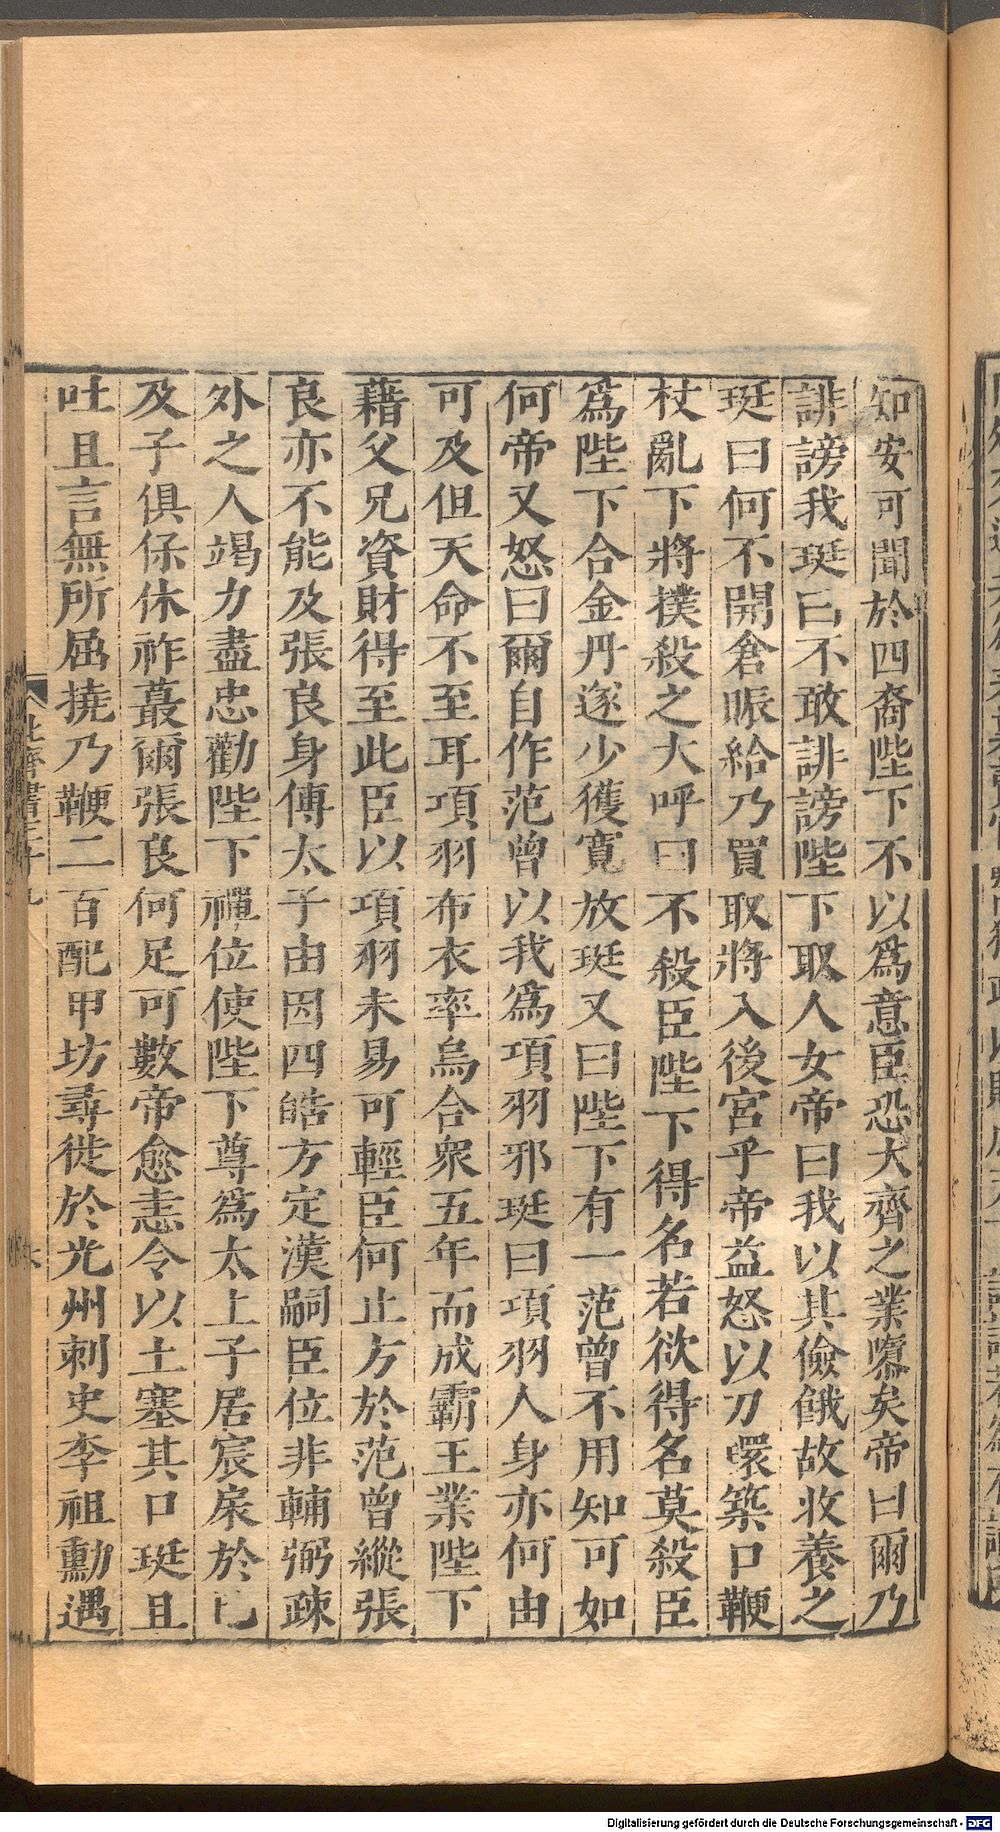 知安可聞於四裔陛下不以爲意臣恐大齊之業隳矣帝曰爾乃
誹謗我珽曰不敢誹謗陛下取人女帝曰我以其儉餓故收養之
珽曰何不開倉賑給乃買取將入後宮乎帝益怒以刀環築口鞭
杖亂下將撲殺之大呼曰不殺臣陛下得名若欲得名莫殺臣
爲陛下合金丹遂少獲寬放珽又曰陛下有一范曾不用知可如
何帝又怒曰爾自作范曾以我爲項羽邪珽曰項羽人身亦何由
可及但天命不至耳項羽布衣率烏合衆五年而成霸王業陛下
藉父兄資財得至此臣以項羽未易可輕臣何止方於范曾縱張
良亦不能及張良身傅太子由因四皓方定漢嗣臣位非輔弼疎
外之人竭力盡忠勸陛下禪位使陛下尊爲太上子居宸扆於已
及子俱保休祚蕞爾張良何足可數帝愈恚令以土塞其口珽且
吐且言無所屈撓乃鞭二百配甲坊尋徙於光州刺史李祖勳遇
北齊書三十九
Digitalisierung gefördert durch die Deutsche Forschungsgemeinschaft - DFG